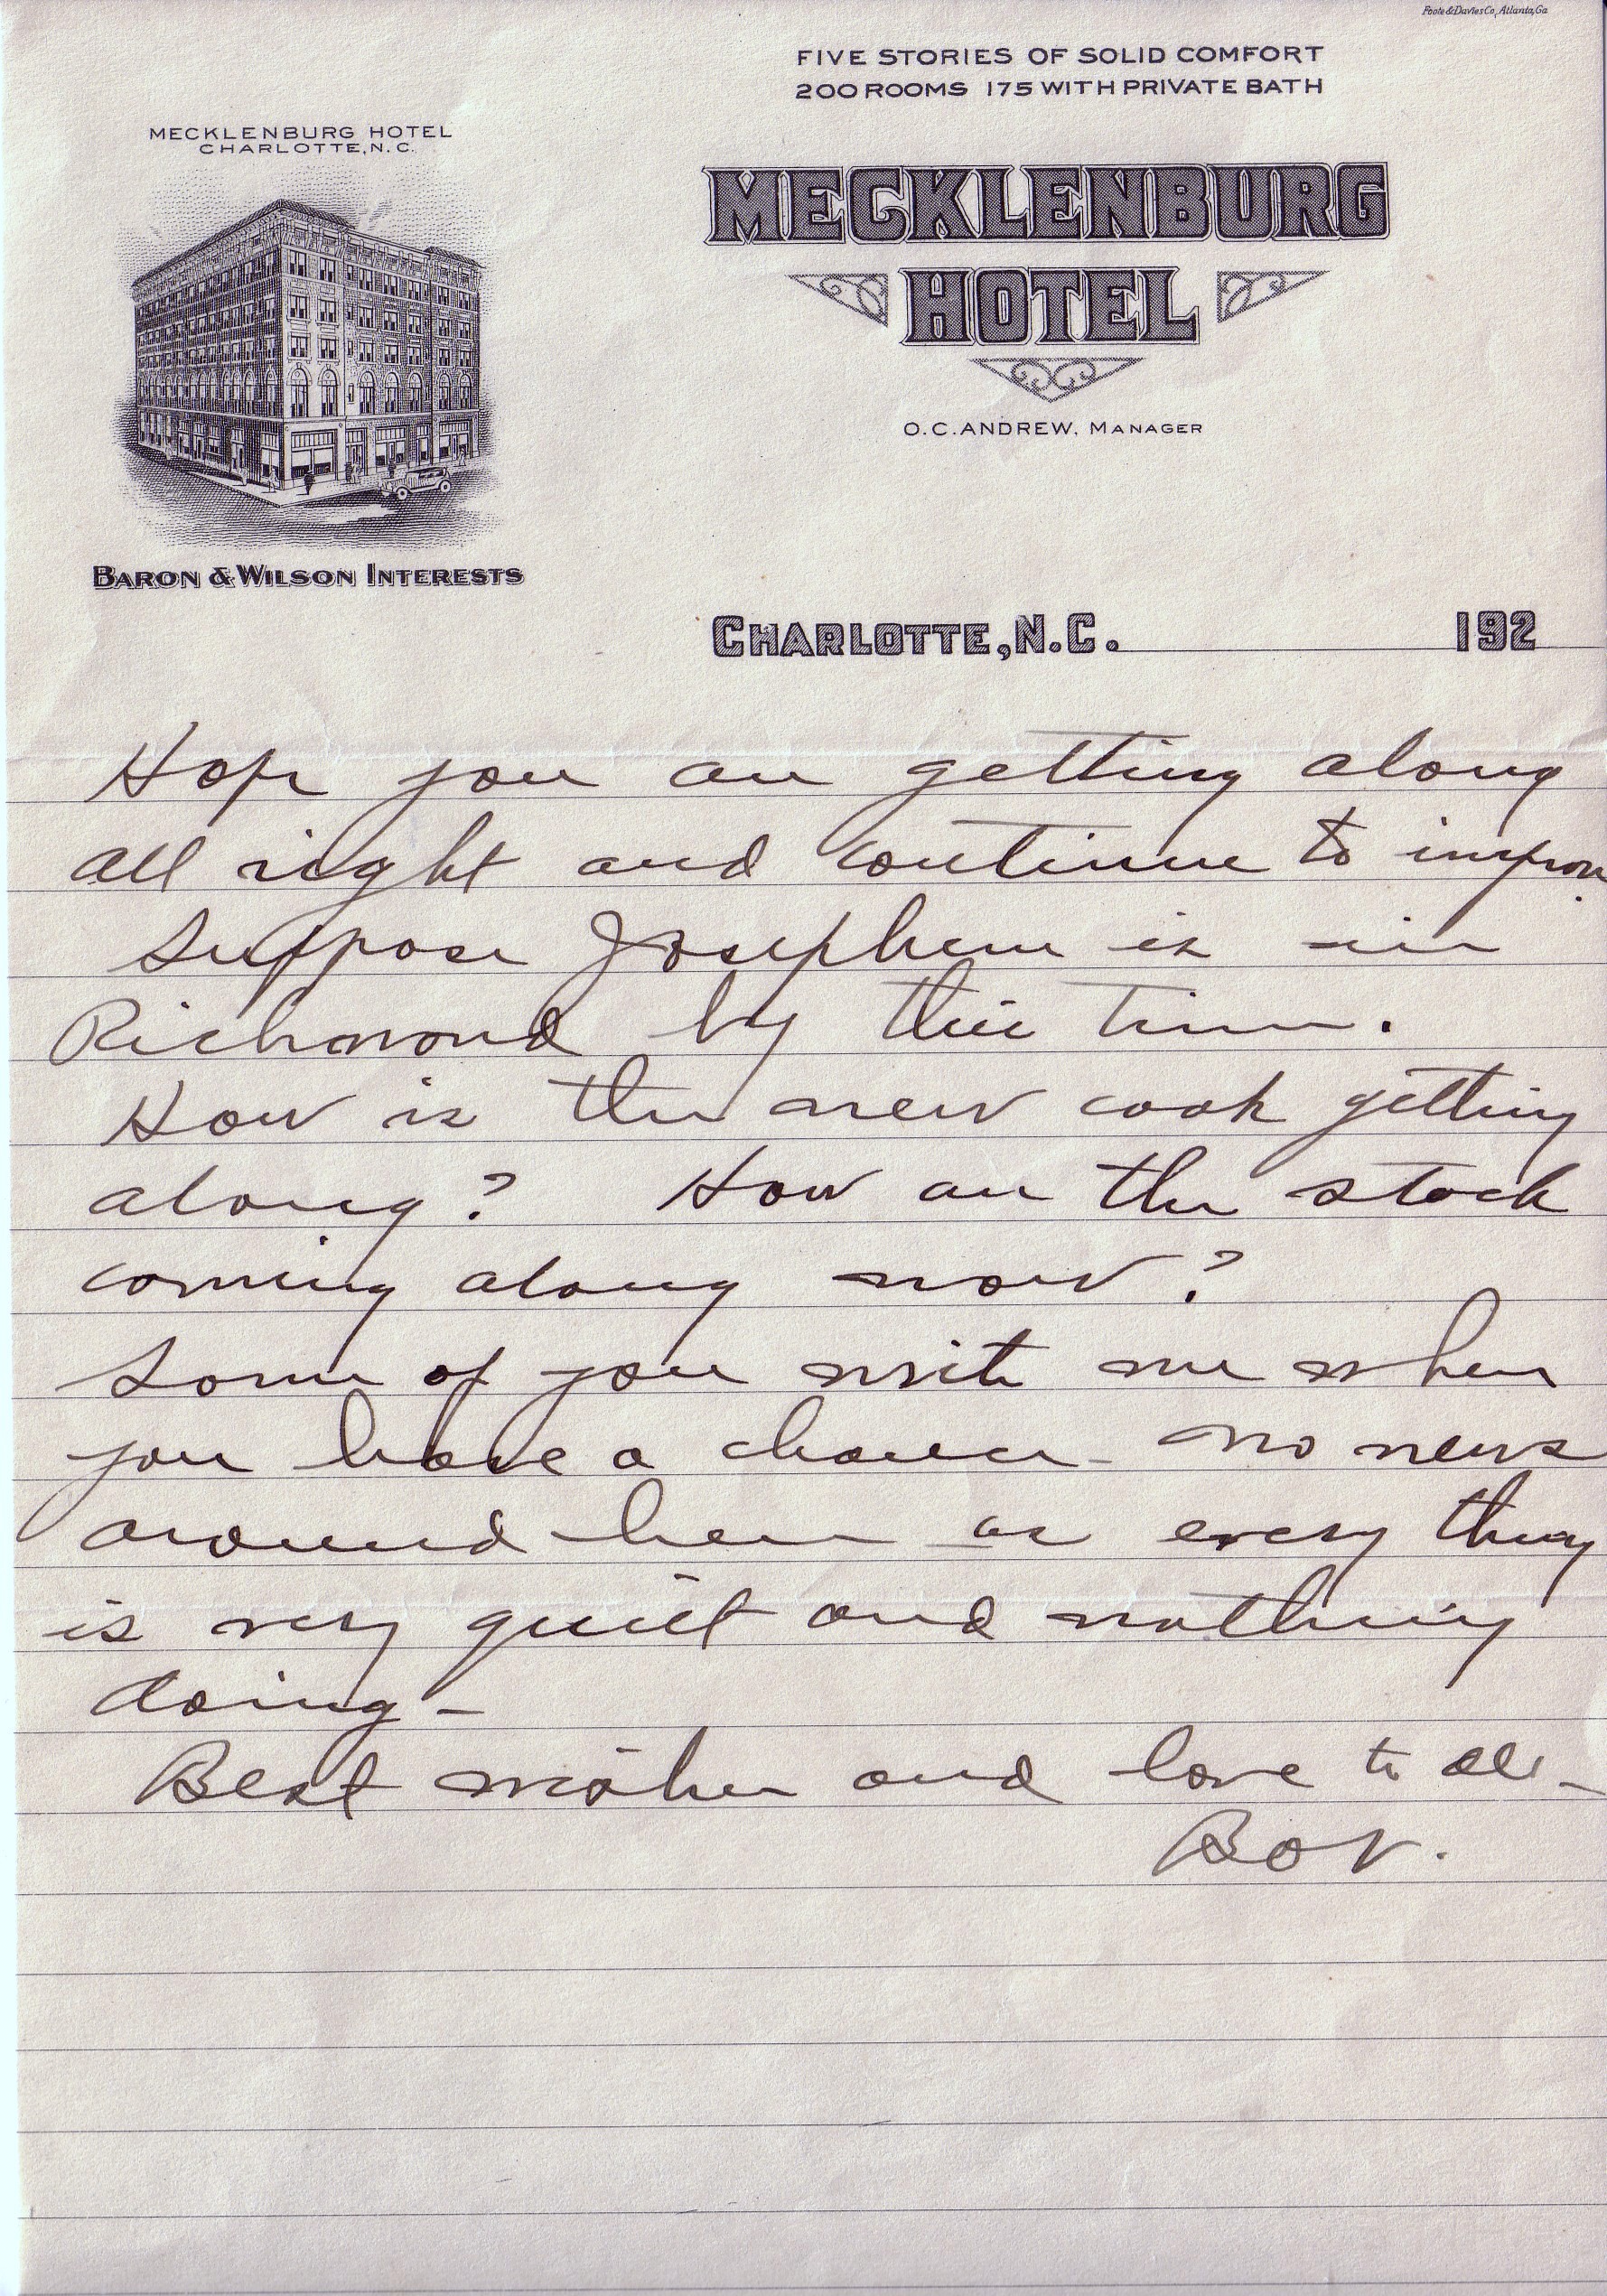 Foote & Davies Co, Atlanta, Ga
FIVE STORIES OF SOLID COMFORT
200 ROOMS 175 WITH PRIVATE BATH
MECKLENBURG HOTEL
CHARLOTTE, N.C.
MECKLENBURG
HOTEL
O.C. ANDREW, MANAGER
BARON & WILSON INTERESTS
CHARLOTTE, N.C. 192
Hope you are getting along
all right and continue to improve.
Suppose Josephine is in
Richmond by this time.
How is the new cook getting
along? How are the stock
coming along now?
Some of you write me when
you have a chance - no news
around here as every thing
is very quiet and nothing
doing -
Best wishes and love to all -
Bov.